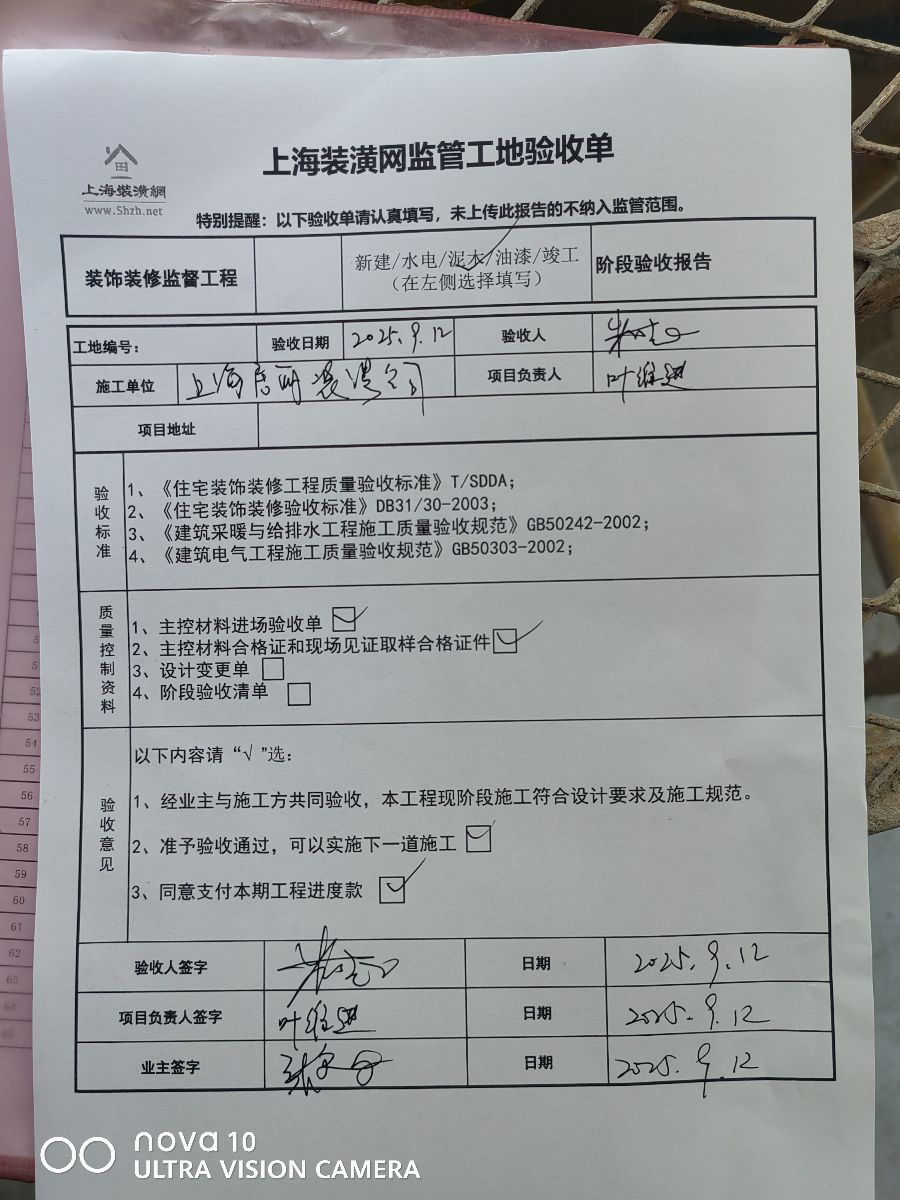 上海装潢网监管工地验收单
上海装潢網
www.Shzh.net
特别提醒：以下验收单请认真填写，未上传此报告的不纳入监管范围。
装饰装修监督工程 新建/水电/泥木/油漆/竣工 阶段验收报告
（在左侧选择填写）
工地编号： 验收日期 2025.9.12 验收人
施工单位 上海 装潢公司 项目负责人 叶维
项目地址
验收标准
1、《住宅装饰装修工程质量验收标准》T/SDDA；
2、《住宅装饰装修验收标准》DB31/30-2003；
3、《建筑采暖与给排水工程施工质量验收规范》GB50242-2002；
4、《建筑电气工程施工质量验收规范》GB50303-2002；
质量控制资料
1、主控材料进场验收单
2、主控材料合格证和现场见证取样合格证件
3、设计变更单
4、阶段验收清单
验收意见
以下内容请“√”选：
1、经业主与施工方共同验收，本工程现阶段施工符合设计要求及施工规范。
2、准予验收通过，可以实施下一道施工
3、同意支付本期工程进度款
验收人签字 日期 2025.9.12
项目负责人签字 叶维 日期 2025.9.12
业主签字 日期 2025.9.12
51
52
53
54
55
56
57
58
59
60
61
62
63
64
65
nova 10
ULTRA VISION CAMERA